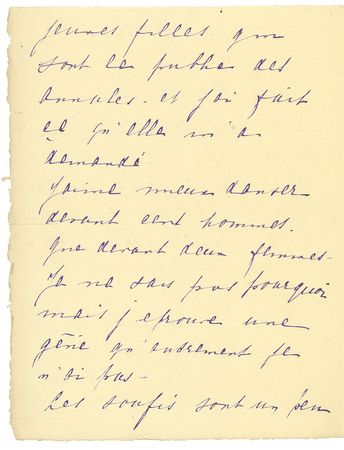 jeunes filles qui
sont le public des
annales - et j'ai fait
ce qu'elle m'a
demandé.
J'aime mieux danser
devant cent hommes.
que devant deux femmes -
Je ne sais pas pourquoi
mais j'eprouve une
gêne qu'autrement je
n'ai pas -
Les soufis sont un peu